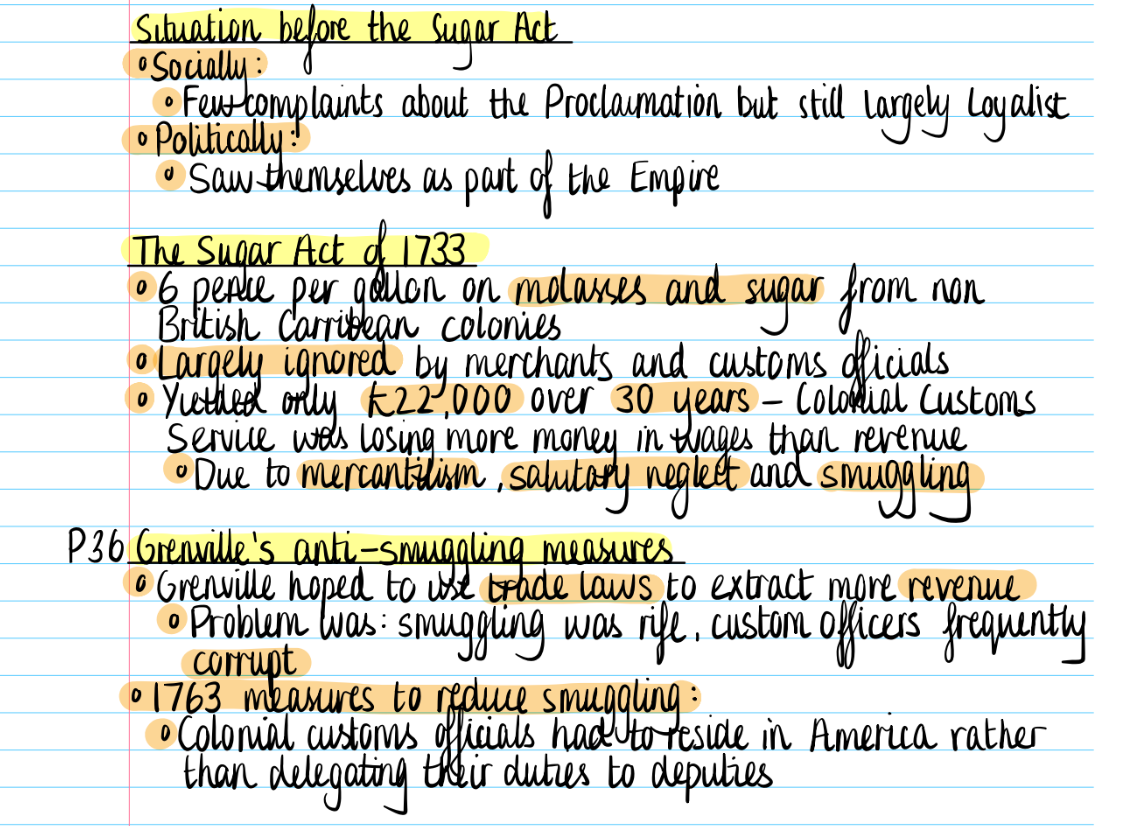 Situation before the Sugar Act
Socially:
Few complaints about the Proclaimation but still largely Loyalist
Politically:
Saw themselves as part of the Empire
The Sugar Act of 1733
6 pence per gallon on molasses and sugar from non
British Carribean colonies
Largely ignored by merchants and customs officials
Yielded only £22,000 over 30 years – Colonial Customs
Service was losing more money in wages than revenue
Due to mercantilism, salutary neglect and smuggling
P36 Grenville's anti-smuggling measures
Grenville hoped to use trade laws to extract more revenue
Problem was: smuggling was rife, custom officers frequently
corrupt
1763 measures to reduce smuggling:
Colonial customs officials had to reside in America rather
than delegating their duties to deputies